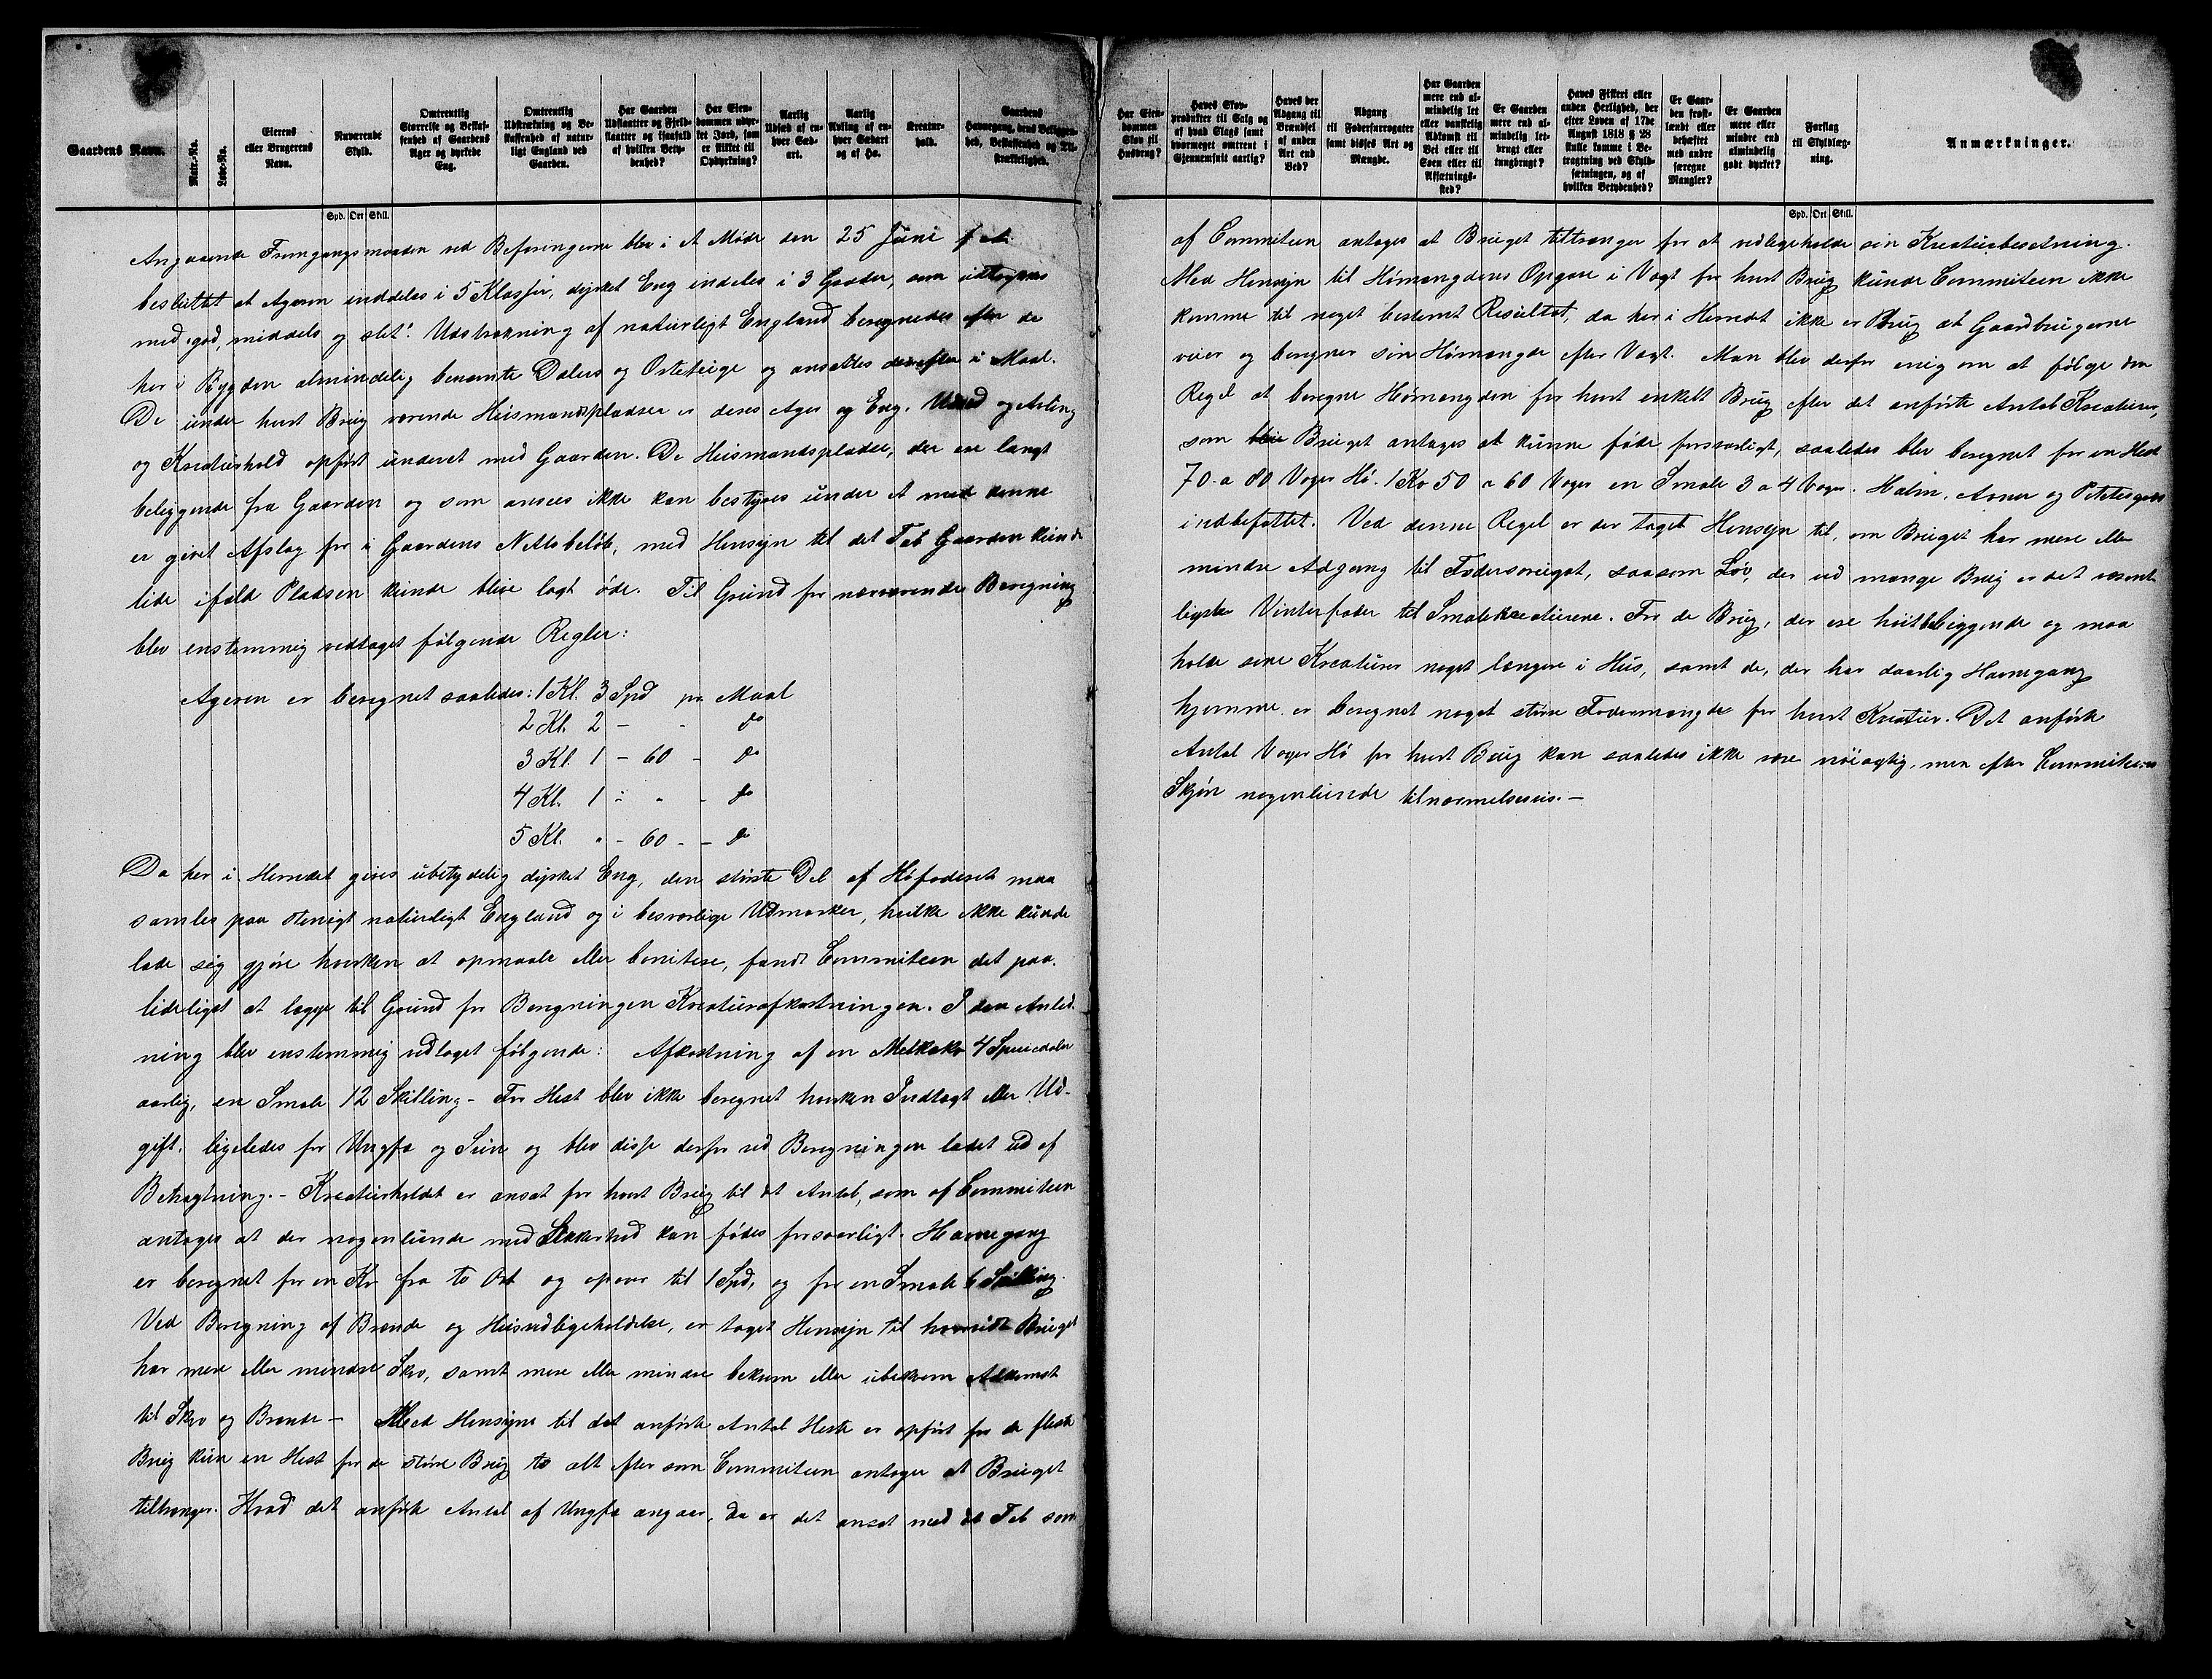 Gaardens Navn.
Matr.-No.
Løbe-No.
Eierens
eller Brugerens
Navn.
Nuværende
Skyld.
Spd. Ort Skill.
Omtrentlig
Størrelse og Beskaf-
fenhed af Gaardens
Ager og dyrkede
Eng.
Omtrentlig
Udstrækning og Be-
skaffenhed af natur-
ligt England ved
Gaarden.
Har Gaarden
Udslaatter og Fjeld-
slaatter og isaafald
af hvilken Bety-
denhed?
Har Eien-
dommen udyr-
ket Jord, som
er skikket til
Opdyrkning?
Aarlig
Udsæd af en-
hver Sæd-
art.
Aarlig
Avling af en-
hver Sædart
og af Hø.
Kreatur-
hold.
Gaardens
Havnegang, dens Beliggen-
hed, Beskaffenhed og Til-
strækkelighed.
Angaaende Fremgangsmaaden ved Befaringerne blev i et Møde den 25 Juni
besluttet at Ageren inddeles i 5 Klasser, dyrket Eng indeles i 3 Grader, som udtrykkes
med „god, middels og slet". Udstrækning af naturligt England beregnedes efter de
her i Bygden almindelig benævnte Dalers og Orteteige og ansattes derefter i Maal.
De under hvert Brug værende Husmandspladser er deres Ager og Eng, Udsæd og Avling
og Kreaturhold opført underet med Gaarden. De Husmandspladse, der ere langt
beliggende fra Gaarden og som ansees ikke kan bestyres under et med denne
er givet Afslag for i Gaardens Nettobeløb, med Hensyn til det Tab Gaarden kunde
lide ifald Pladsen kunde blive lagt øde. Til Grund for nærværende Beregning
blev enstemmig vedtaget følgende Regler:
Ageren er beregnet saaledes: 1 Kl. 3 Spd pr Maal
2 Kl. 2 - - do
3 Kl. 1 - 60 - do
4 Kl. 1 - " - do
5 Kl. " - 60 - - do
Da her i Herredet gives ubetydelig dyrket Eng, den største Del af Høfoderet maa
samles paa stenigt naturligt England og i besværlige Udmarker, hvilke ikke kunde
lade sig gjøre hverken at opmaale eller bonitere, fandt Commiteen det paa-
lideligst at lægge til Grund for Beregningen Kreaturafkastningen. I den Anled-
ning blev enstemmig vedtaget følgende: Afkastning af en Melkeko 4 Speciedaler
aarlig, en Smale 12 Skilling - For Hest blev ikke beregnet hverken Indtægt eller Ud-
gift, ligeledes for Ungfæ og Svin og blev disse derfor ved Beregningen ladet ud af
Betragtning. - Kreaturholdet er ansat for hvert Brug til et Antal, som af Commiteen
antages at der nogenlunde med Sikkerhed kan fødes forsvarligt. Havnegang
er beregnet for en Ko fra to Ort og opover til 1 Spd, og for en Smale 6 Skilling.
Ved Beregning af Brænde og Husvedligeholdelse, er taget Hensyn til hvorvidt Bruget
har mere eller mindre Skov, samt mere eller mindre bekvem eller ubekvem Adkomst
til Skov og Brænde - Med Hensyn til det anførte Antal Heste er opført for de fleste
Brug kun en Hest for de større Brug to alt efter som Commiteen antager at Bruget
tiltrænger. Hvad det anførte Antal af Ungfæ angaar, da er det ansat med det Tab som
Har Eien-
dommen
Skov til
Husbrug?
Haves Skov-
produkter til Salg og
af hvad Slags samt
hvormeget omtrent i
Gjennemsnit aarlig?
Haves der
Adgang til
Brændsel
af anden
Art end
Ved?
Adgang
til Fodersurrogater
samt disses Art og
Mængde.
Har Gaarden
mere end al-
mindelig let
eller vanskelig
Adkomst til
Vei eller til
Søen eller til
Afsætnings-
sted?
Er Gaarden
mere end al-
mindelig let-
brugt eller
tungbrugt?
Haves Fiskeri eller
anden Herlighed, der
efter Loven af 17de
August 1818 § 28
skulle komme i Be-
tragtning ved Skyld-
sætningen, og af
hvilken Betydenhed?
Er Gaar-
den frost-
lændt eller
behæftet
med andre
særegne
Mangler?
Er Gaarden
mere eller
mindre end
almindelig
godt dyrket?
Forslag
til Skyldlæg-
ning.
Spd. Ort Skill.
Anmærkninger.
af Commiteen antages at Bruget tiltrænger for at vedligeholde sin Kreaturbesetning.
Med Hensyn til Hømængdens Opgave i Vægt for hvert Brug kunde Commiteen ikke
komme til noget bestemt Resultat, da her i Herredt ikke er Brug at Gaardbrugerne
veier og beregner sin Hømængde efter Vægt. Man blev derfor enig om at følge den
Regel at beregne Hømængden for hvert enkelt Brug efter det anførte Antal Kreaturer,
som Bruget antages at kunne føde forsvarligt, saaledes blev beregnet for en Hest
70 a 80 Voger Hø. 1 Ko 50 a 60 Voger en Smale 3 a 4 Voger. Halm, Avner og
indbefattet. Ved denne Regel er der taget Hensyn til, om Bruget har mere eller
mindre Adgang til Fodersorrigat, saasom Løv, der ved mange Brug er det væsent-
ligste Vinterfoder til Smalekreaturene. For de Brug, der ere høitbeliggende og maa
holde sine Kreaturer noget længere i Hus, samt de, der har daarlig Havnegang
hjemme er beregnet noget større Fodermængde for hvert Kreatur. Det anførte
Antal Voger Hø for hvert Brug kan saaledes ikke være nøiagtig, men efter Commiteens
Skjøn nogenlunde tilnærmelsesvis. -